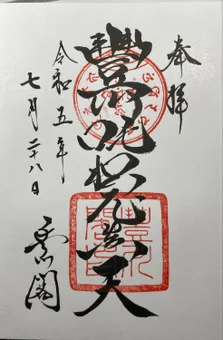 奉拝
豐川吒枳尼眞天
令和五年
七月二十八日
豊川閣